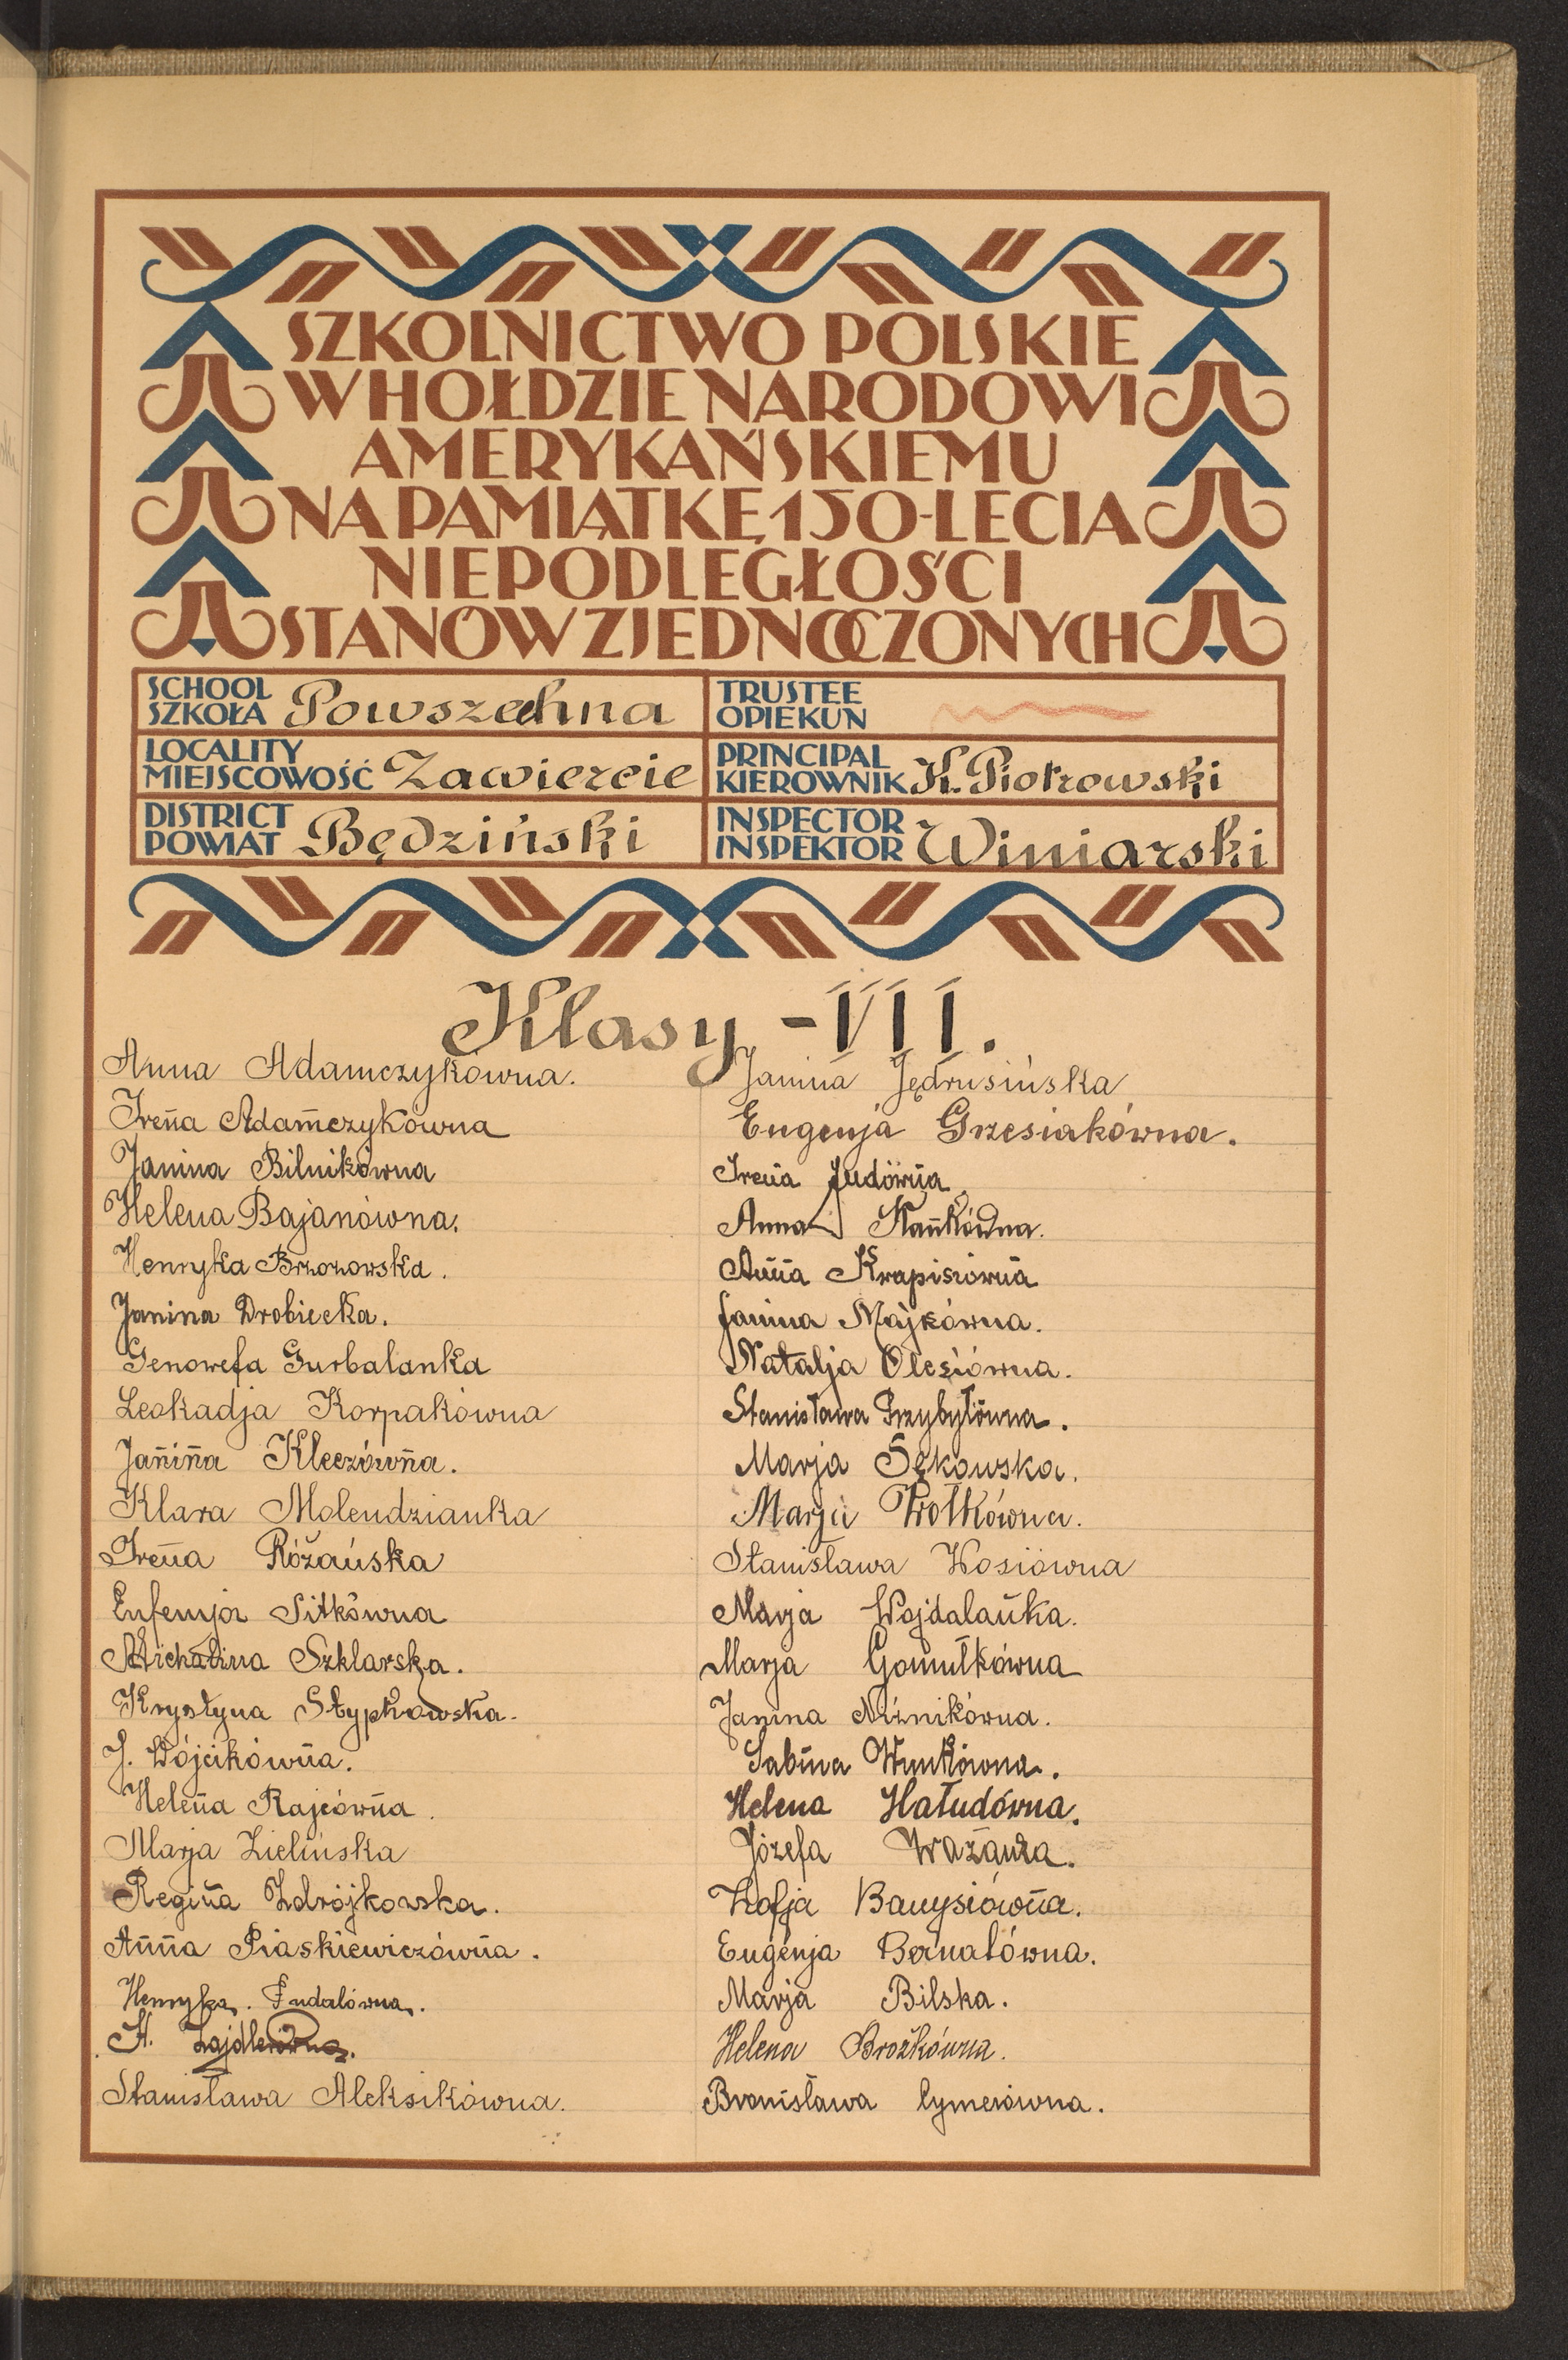 SZKOLNICTWO POLSKIE
W HOŁDZIE NARODOWI
AMERYKAŃSKIEMU
NA PAMIĄTKĘ 150-LECIA
NIEPODLEGŁOŚCI
STANÓW ZJEDNOCZONYCH
SCHOOL
SZKOŁA Powszechna
TRUSTEE
OPIEKUN
LOCALITY
MIEJSCOWOŚĆ Zawiercie
PRINCIPAL
KIEROWNIK K. Piotrowski
DISTRICT
POWIAT Będziński
INSPECTOR
INSPEKTOR Winiarski
Klasy - VII.
Anna Adamczykówna.
Irena Adamczykówna
Janina Bilnikówna
Helena Bajanówna.
Henryka Brzozowska.
Janina Drobiecka.
Genowefa Gurbalanka
Leokadja Korpakówna
Janina Kleczówna.
Klara Molendzianka
Irena Różańska
Eufemja Sitkówna
Michalina Szklarska.
Krystyna Stypkowska.
J. Wójcikówna.
Helena Rajcówna.
Marja Zielińska
Regina Zdrójkowska.
Anna Piaskiewiczówna.
Henryka. Fudalówna.
H. Zajdlerówna.
Stanisława Aleksikówna.
Janina Jędrusińska
Eugenja Grzesiakówna.
Irena Judówna
Anna
Anna Krapisiówna
Janina Majkówna.
Natalja Olesiówna.
Stanisława Przybyłówna.
Marja Sękowska.
Marja
Stanisława Wosiówna
Marja Wojdalanka.
Marja Gomułkówna
Janina Niźnikówna.
Sabina
Helena Hałudówna.
Józefa
Zofja Banysiówna.
Eugenja Bernatówna.
Marja Bilska.
Helena Brożkówna.
Bronisława Cymerówna.